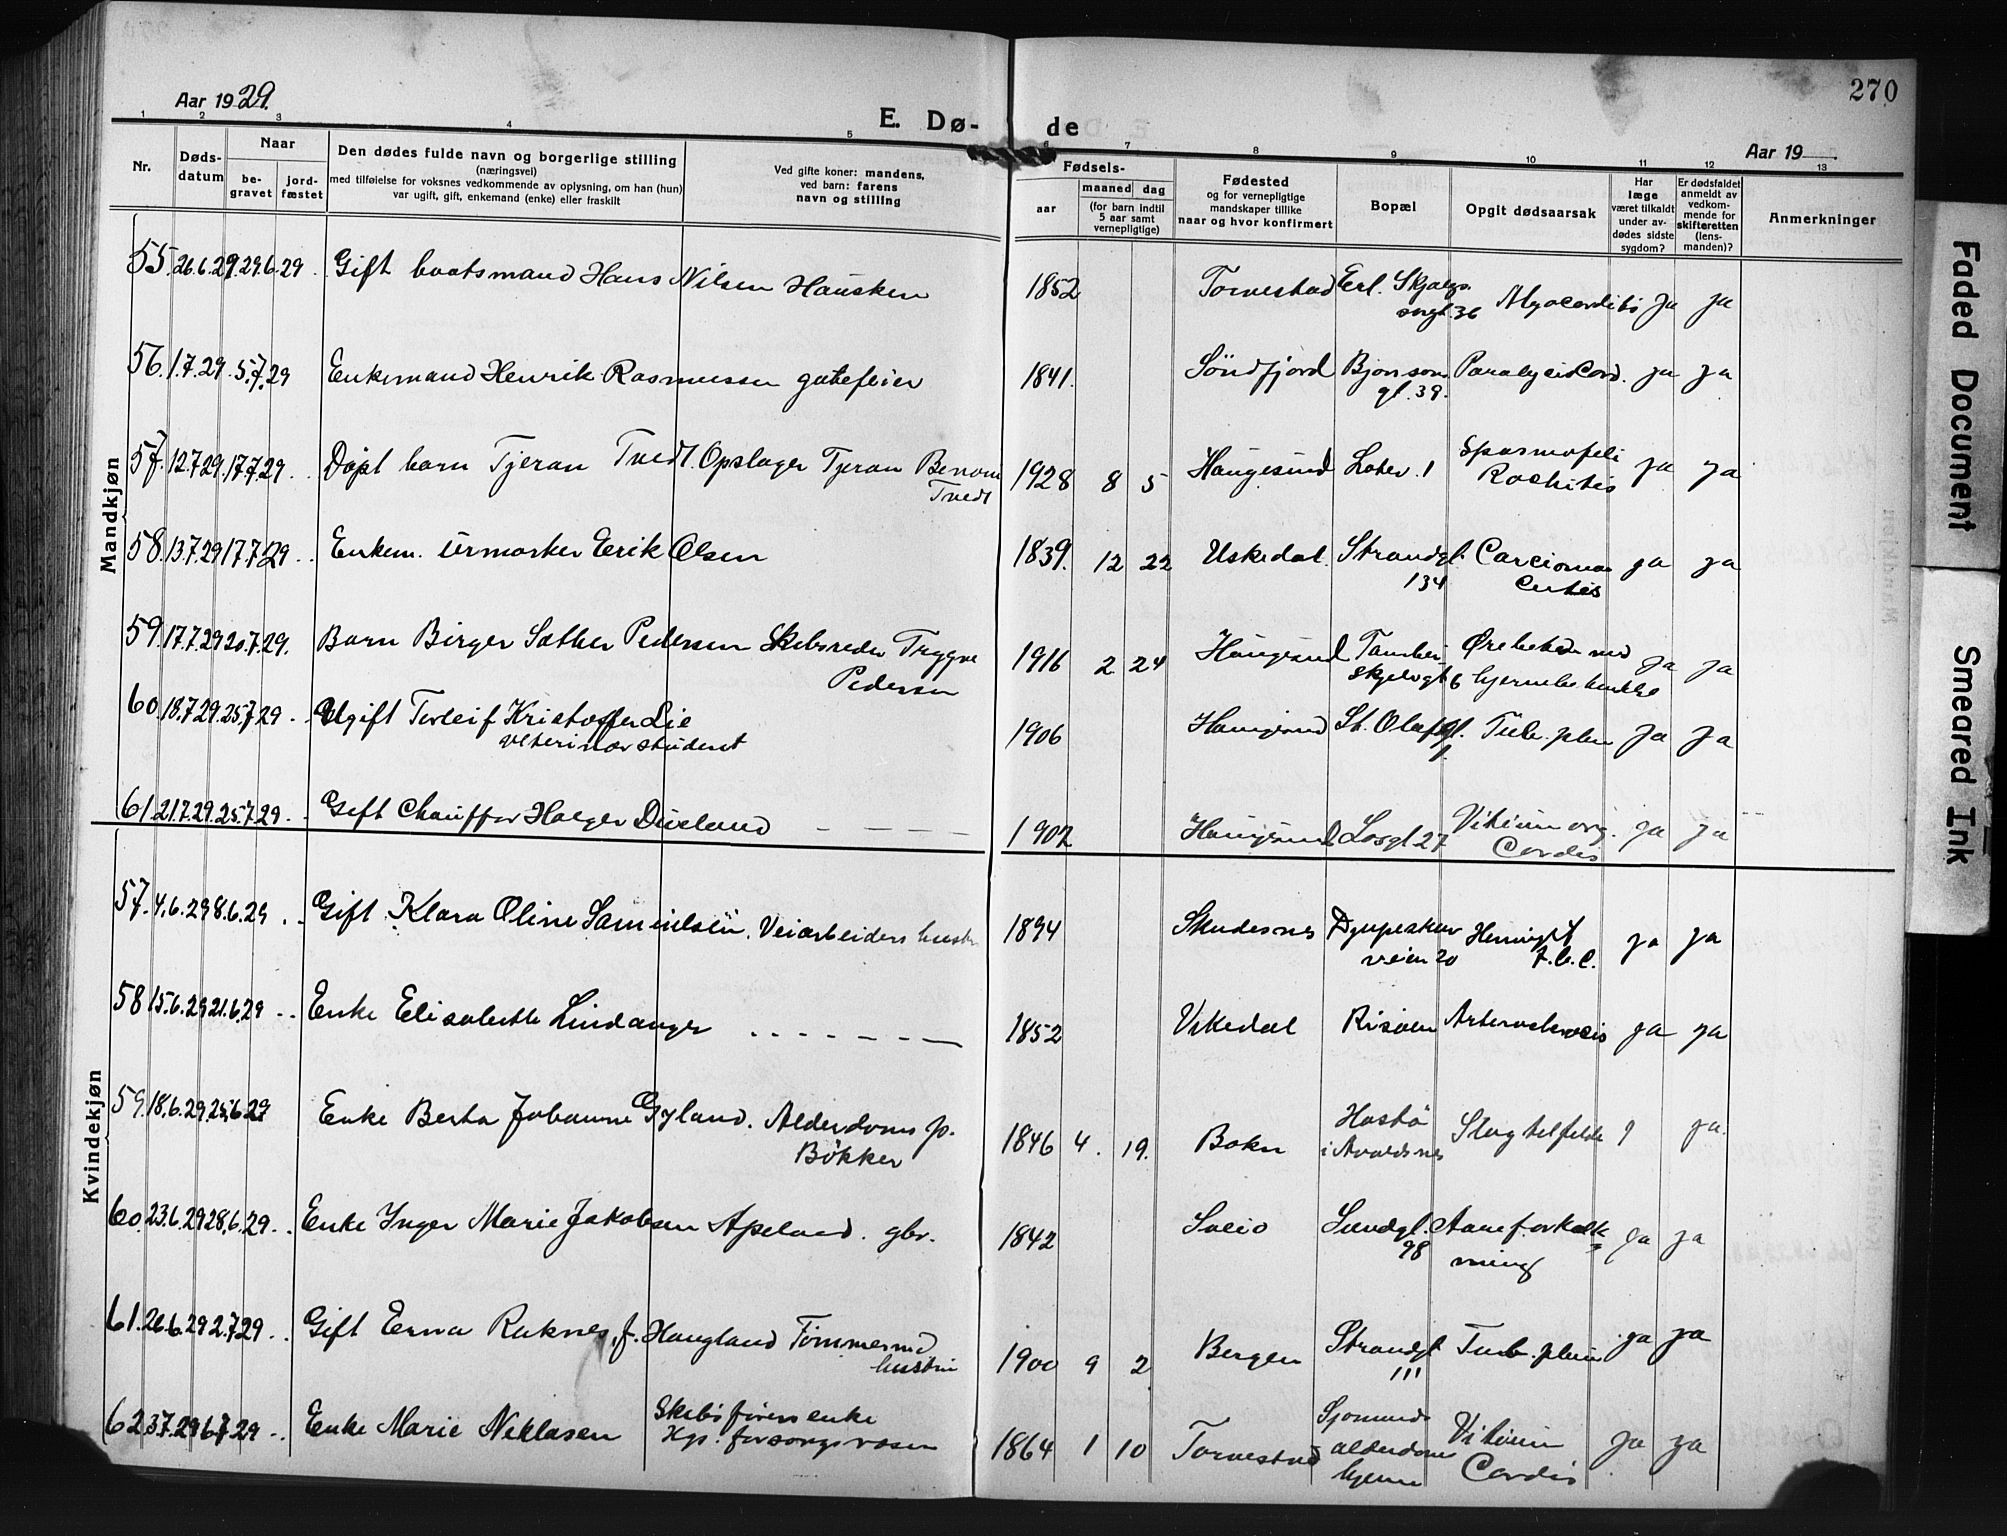 270
Aar 1929.
E. Dø- de
Aar 19
1 2 3 4 5 6 7 8 9 10 11 12 13
Nr.
Døds-datum
Naar
be-gravet
jord-fæstet
Den dødes fulde navn og borgerlige stilling
(næringsvei)
med tilføielse for voksnes vedkommende av oplysning, om han (hun)
var ugift, gift, enkemand (enke) eller fraskilt
Ved gifte koner: mandens,
ved barn: farens
navn og stilling
Fødsels-
aar
maaned dag
(for barn indtil
5 aar samt
vernepligtige)
Fødested
og for vernepligtige
mandskaper tillike
naar og hvor konfirmert
Bopæl
Opgit dødsaarsak
Har
læge
været tilkaldt
under av-
dødes sidste
sygdom?
Er dødsfaldet
anmeldt av
vedkom-
mende for
skifteretten
(lens-
manden)?
Anmerkninger
Mandkjøn
55. 26.6.29. 29.6.29. Gift baatsmand Hans Nilsen Hausken 1852 Torvestad Erl. Skjalgs- Myocarditis ja ja
songt. 36
56. 1.7.29. 5.7.29 Enkemand Henrik Rasmussen gatefeier 1841. Söndfjord Bjørnsons Paralysis Cord. ja ja
gt. 39.
57. 12.7.29. 17.7.29. Døpt barn Tjeran Tvedt. Opslager Tjeran 1928 8 5 Haugesund 1 Spasmofili ja ja
Tvedt Rachitis
58. 13.7.29 17.7.29. Enkem. Urmaker Eerik Olsen 1839. 12 22 Uskedal Strandgt. Carcioma ja ja
134 Cutis
59. 17.7.29 20.7.29. Barn Birger Sæther Pedersen Skibsreder Trygve 1916 2 24 Haugesund Ørebetæn med ja ja
Pedersen skjelvgt 6 hjernebetændelse
60. 18.7.29. 25.7.29. Ugift Torleif Kristoffer Lie 1906 Haugesund St. Olafsgt. Tub. plm ja ja
veterinær student 1
61. 21.7.29. 25.7.29. Gift Chauffør Holger Dueland 1902 Haugesund 27 Vitium org. ja ja
Cordis
Kvindekjøn
57. 4.6.29 8.6.29. Gift Klara Oline Samuelsen. Veiarbeiders hustru 1894 Skudesnes Djupaskar ja ja
veien 20 t.b.c.
58 15.6.29 21.6.29. Enke Elisabeth Lindanger 1852 Vikedal Risöen Arterosclerosis ja ja
59. 18.6.29. 25.6.29 Enke Berta Johanne Gyland. Alderdoms p. 1846 4. 19. Bokn Hastö Slagtilfelde ? ja.
Bökker i Avaldsnes
60. 23.6.29 28.6.29. Enke Inger Marie Jakobsen Apeland. gbr. 1842 Sveio Sundgt. Aareforkalk- ja ja
98 ning
61. 26.6.29 2.7.29. Gift Erna Raknes, f. Haugland Tömmermd 1900 9 2 Bergen Strandgt Tub. plm ja ja
hustru 111
62 3.7.29 6.7.29. Enke Marie Niklasen Skibsförers enke 1864 1 10 Torvestad Sjomands Vitium ja ja
Hgs. forsorgsvæsen alderdoms Cordis
hjem
Faded Document
Smeared Ink